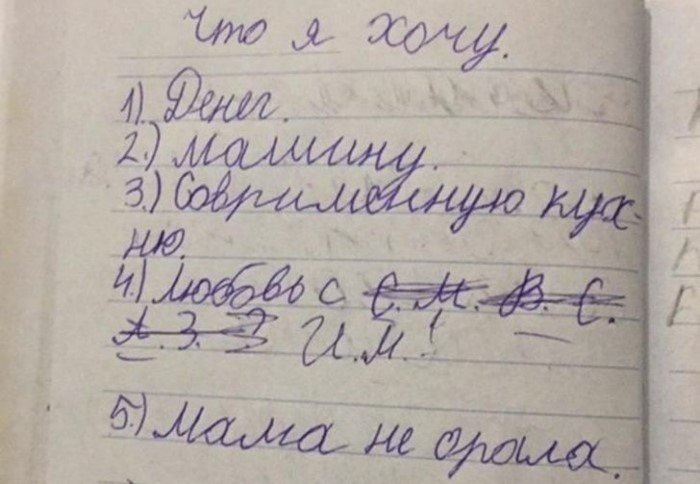 Что я хочу.
1). Денег.
2.) машину.
3.) Соврименную кух-
ню.
4.) Любовь с С. М. В. С.
А. З. З И.М.!
5.) Мама не орала.